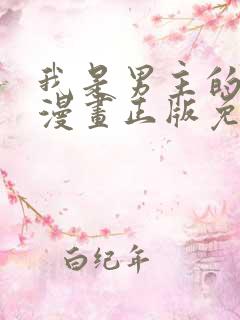 我是男主的
漫畫正版免
白纪年